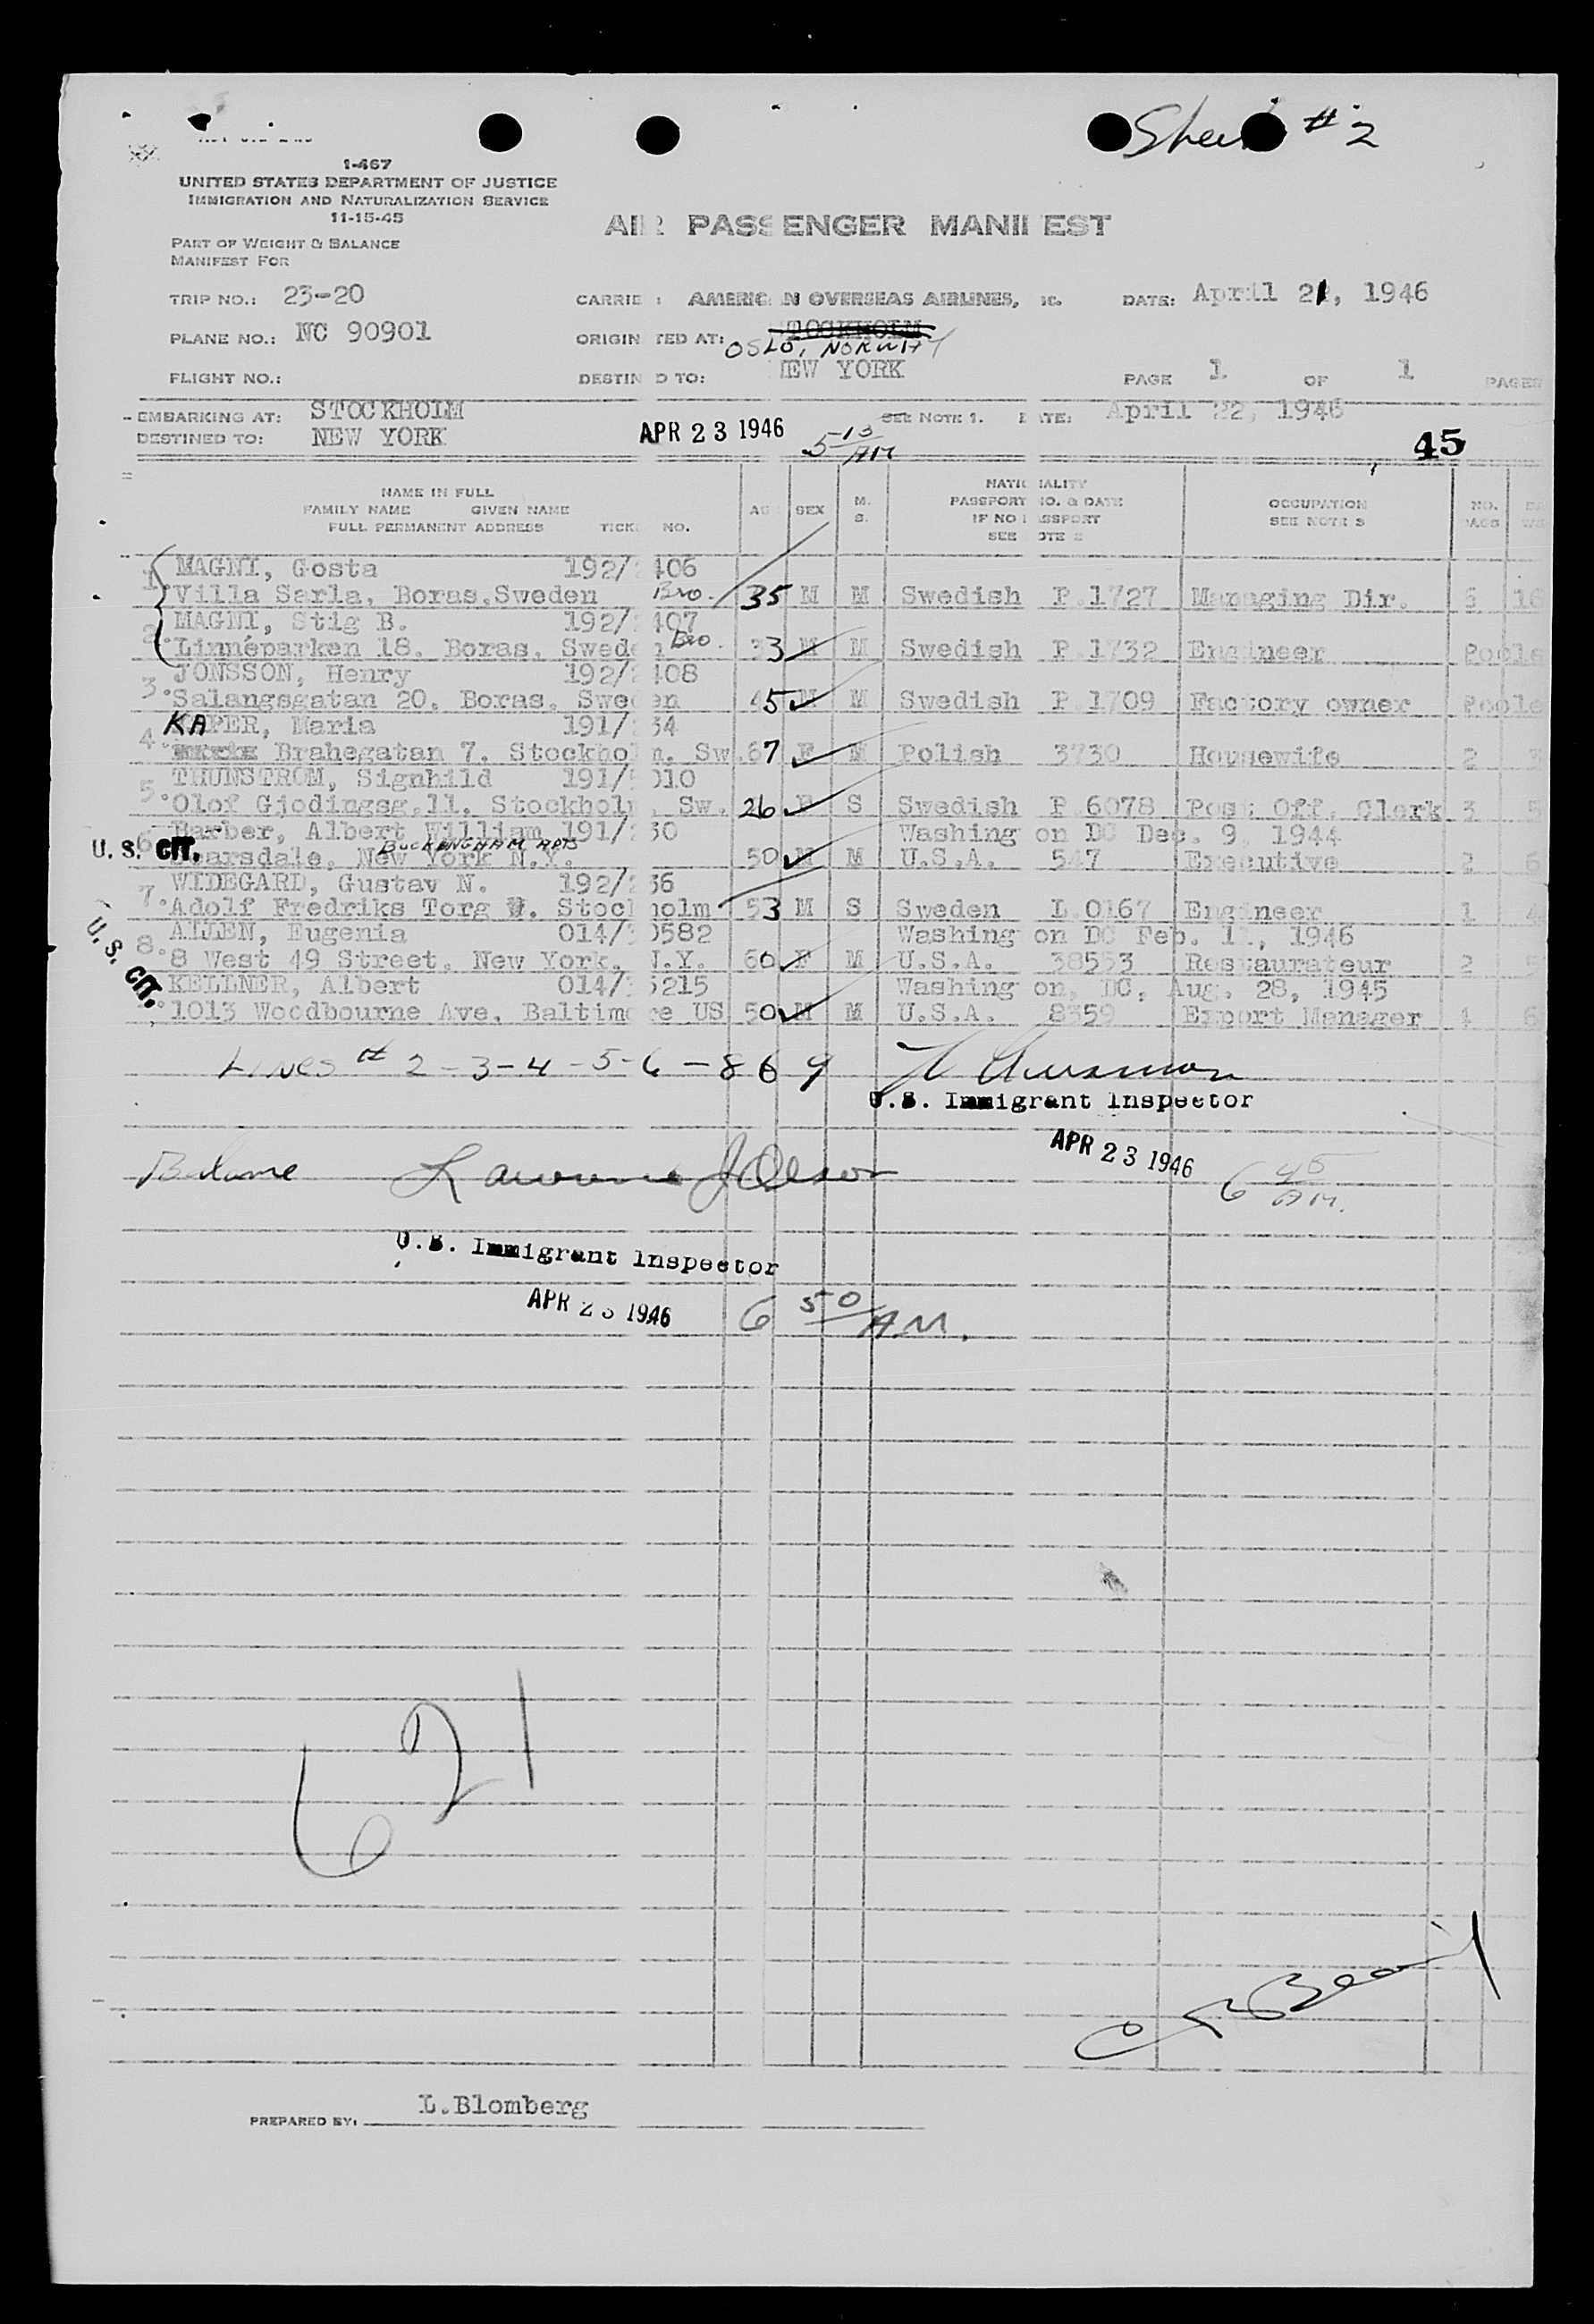 Sheet # 2
1-467
UNITED STATES DEPARTMENT OF JUSTICE
IMMIGRATION AND NATURALIZATION SERVICE
11-15-45
AIR PASSENGER MANIFEST
PART OF WEIGHT & BALANCE
MANIFEST FOR
TRIP NO.: 23-20 CARRIE : AMERICAN OVERSEAS AIRLINES, DATE: April 21, 1946
PLANE NO.: NC 90901 ORIGIN TED AT: STOCKHOLM
OSLO, NORWAY
FLIGHT NO.: DESTIN D TO: EW YORK PAGE 1 OF 1 PAGES
EMBARKING AT: STOCKHOLM SEE NOTE 1. ATE: April 22, 1946
DESTINED TO: NEW YORK APR 23 1946 5 15 AM 45
NAME IN FULL
FAMILY NAME GIVEN NAME
FULL PERMANENT ADDRESS TICK NO. AG SEX M. S. NATIONALITY PASSPORT NO. & DATE IF NO PASSPORT SEE NOTE OCCUPATION SEE NOTE NO.
MAGNI, Gosta 192/ 406
1. Villa Sarla, Boras, Sweden Bro. 35 M M Swedish P.1727 Managing Dir. 16
MAGNI, Stig B. 192/ 407
2. Linnéparken 18. Boras, Sweden Bro. 33 M M Swedish P 1732 Engineer Poole
JONSSON, Henry 192/ 408
3. Salangsgatan 20. Boras, Sweden 45 M M Swedish P 1709 Factory owner Poole
KAPER, Maria 191/ 34
4. Brahegatan 7. Stockholm, Sw. 67 F M Polish 3730 Housewife 2
THUNSTROM, Signhild 191/ 010
5. Olof Gjodingsg.11. Stockholm, Sw. 26 F S Swedish P 6078 Post Off. Clerk 3 5
6. Barber, Albert William 191/ 30 Washington DC Dec. 9, 1944
U. S. CIT. Scarsdale, New York N.Y. BUCKINGHAM APTS 50 M M U.S.A. 547 Executive 2 6
WIDEGARD, Gustav N. 192/ 36
7. Adolf Fredriks Torg . Stockholm 53 M S Sweden L 0167 Engineer 1 4
ALLEN, Eugenia 014/ 0582 Washington DC Feb. 11, 1946
U. S. CIT. 8. 8 West 49 Street, New York, N.Y. 60 F M U.S.A. 38553 Restaurateur 2
KELLNER, Albert 014/ 5215 Washington, DC, Aug. 28, 1945
1013 Woodbourne Ave. Baltimore US 50 M M U.S.A. 8359 Export Manager 4 6
LINES # 2-3-4-5-6-8 & 9
U.S. Immigrant Inspector
APR 23 1946 6 45 AM.
Balance Lawrence J Olson
U.S. Immigrant Inspector
APR 23 1946 6 50 AM.
621
PREPARED BY: L.Blomberg